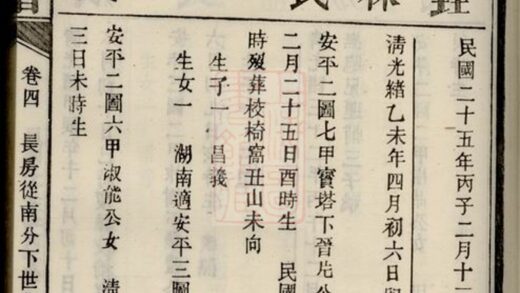 民國二十五年丙子二月十三
清光緒乙未年四月初六日
安平二圖七甲寶塔下晉片公
二月二十五日酉時生 民國
時歿葬校椅窩丑山未向
生子一 昌義
生女一 湖南適安平三圖
安平二圖六甲淑能公女 清
三日未時生
卷四 長房從南分下世